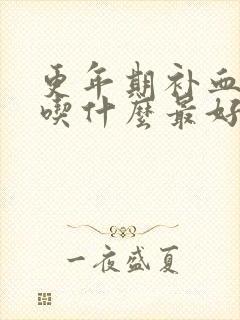 更年期补血
喫什麽最好
一夜盛夏